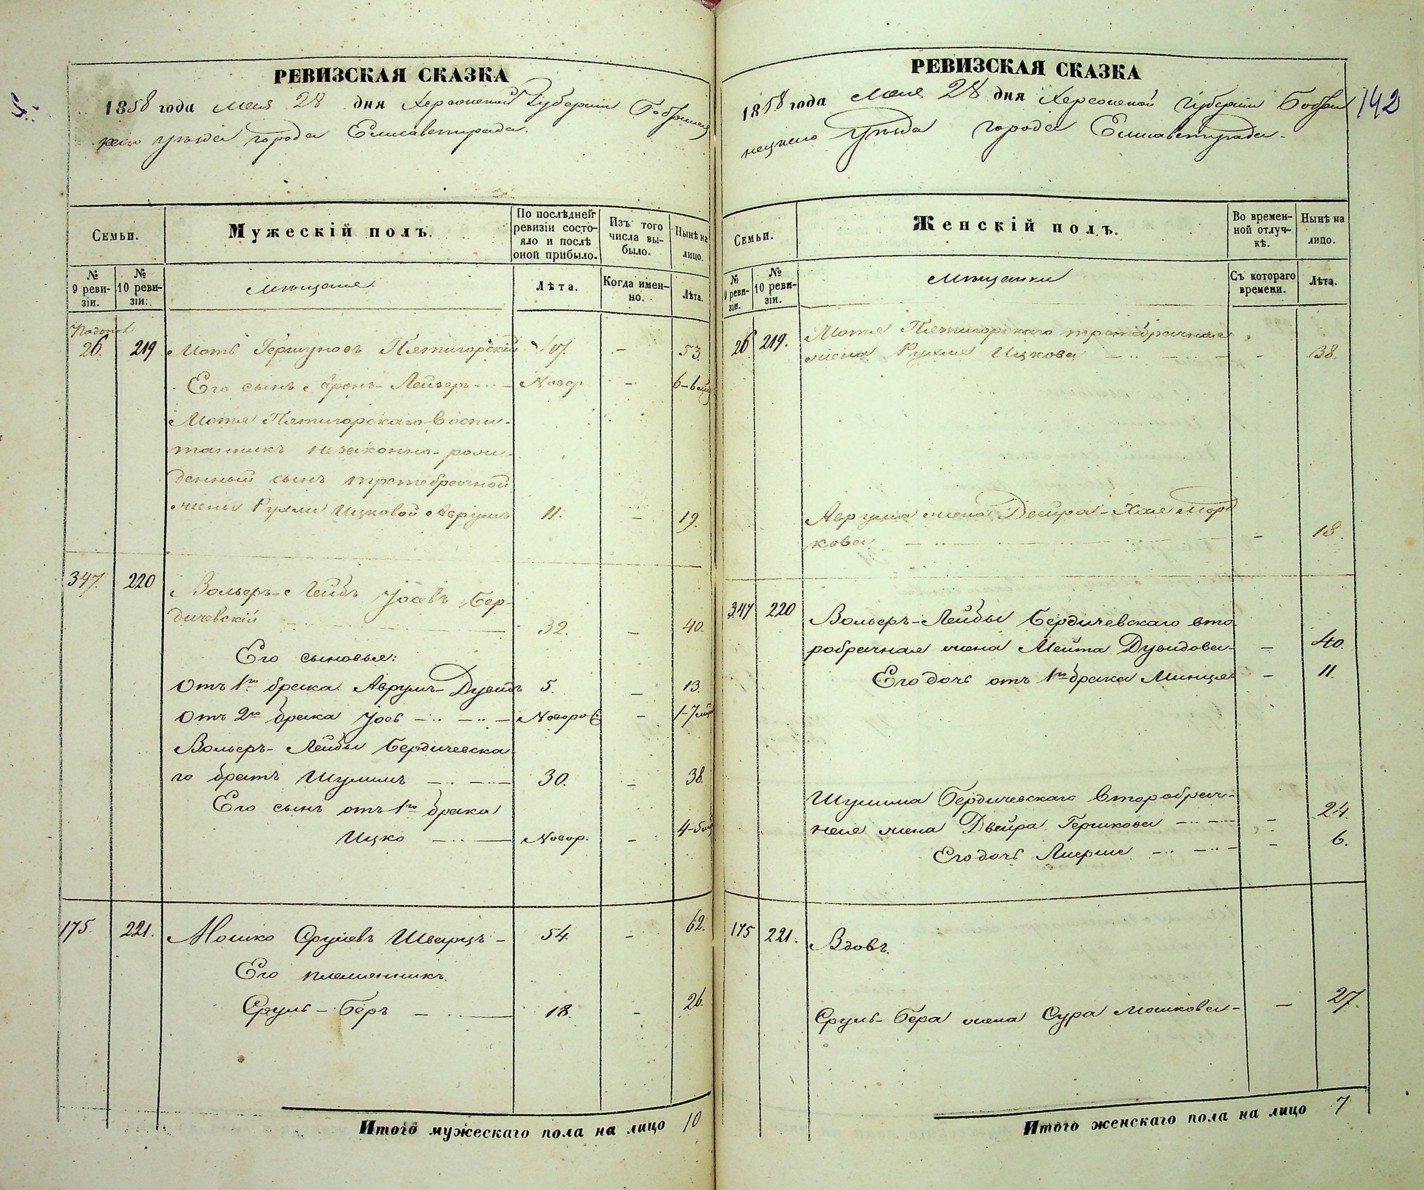 РЕВИЗСКАЯ СКАЗКА
1858 года мая 28 дня Херсонской Губернии Бобринец
каго уѣзда города Елисаветграда.
Семьи.
Мужескій полъ.
По послѣдней ревизіи состояло и послѣ оной прибыло.
Изъ того числа выбыло.
Нынѣ на лицо.
№ 9 ревизіи.
№ 10 ревизіи.
Мѣщане
Лѣта.
Когда именно.
Лѣта.
26. 219 Моть Гершуновъ Пятигорскій 47. – 53.
Его сынъ Аронъ-Лейзеръ Новор. – 6-6 мѣс
Мотя Пятигорскаго воспи-
танникъ незаконно-рож-
денный сынъ третебрачной
жены Рухли Ицковой Аврумъ 11. – 19.
347. 220 Вольеръ-Лейбъ Іосевъ Бер-
дичевскій 32. – 40.
Его сыновья:
Отъ 1го брака Аврумъ-Дувидъ 5. – 13.
Отъ 2го брака Іось Новоро – 1-7 мѣс
Вольеръ-Лейбы Бердичевска-
го братъ Шулимъ 30. – 38.
Его сынъ отъ 1го брака
Ицко Новор. – 4-5 мѣс
175. 221. Мошко Срулевъ Шварцъ 54. – 62.
Его племянникъ
Сруль-Беръ 18. – 26.
Итого мужескаго пола на лицо 10
РЕВИЗСКАЯ СКАЗКА
142
1858 года мая 28 дня Херсонской Губерніи Бобри
нецкаго уѣзда города Елисаветграда.
Семьи.
Женскій полъ.
Во временной отлучкѣ.
Нынѣ на лицо.
№ 9 ревизіи.
№ 10 ревизіи.
Мѣщанки
Съ котораго времени.
Лѣта.
26 219. Мотя Пятигорскаго третебрачная
жена Рухля Ицкова – 38.
Аврума жена Двейра-Хая Мор
кова – 18.
347 220 Вольеръ-Лейбы Бердичевскаго вто
робрачная жена Мейта Дувидова – 40.
Его дочь отъ 1го брака Минця – 11.
Шулима Бердичевскаго второбрач-
ная жена Двейра Гершкова – 24.
Его дочь – 6.
175 221. Вдовъ.
Сруль-Бера жена Сура Мошкова – 27.
Итого женскаго пола на лицо 7